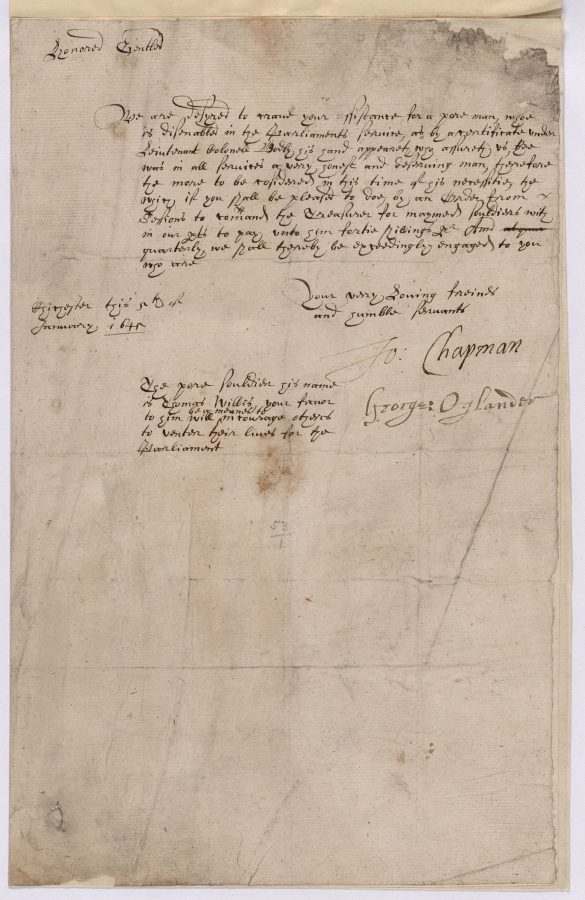 Honored Gentles
We are desyred to crave your assistance for a pore man, whoe
is disenabled in the Parliaments service, as by a certificate under
Leiutenant Colonell his hand appeareth, who assureth us hee
was in all services a very honest and deserving man, therefore
the more to be cosidered in this time of his necessitie, the
which if you shall be pleased to doe, by an Order from
Sesions to comand the Treasurer for maymed souldiers with
in our pts to pay unto him fortie shillings And
quarterly, we shall thereby be exceedingly engaged to you
who are
Your very Loving freinds
and humble servants
Chichester this of
January 1645
Jo: Chapman
George: Oglander
The pore souldier his name
is Thomas Willis, your favor
be a meanes to
to him will incourage others
to venter their lives for the
Parliament
53
1